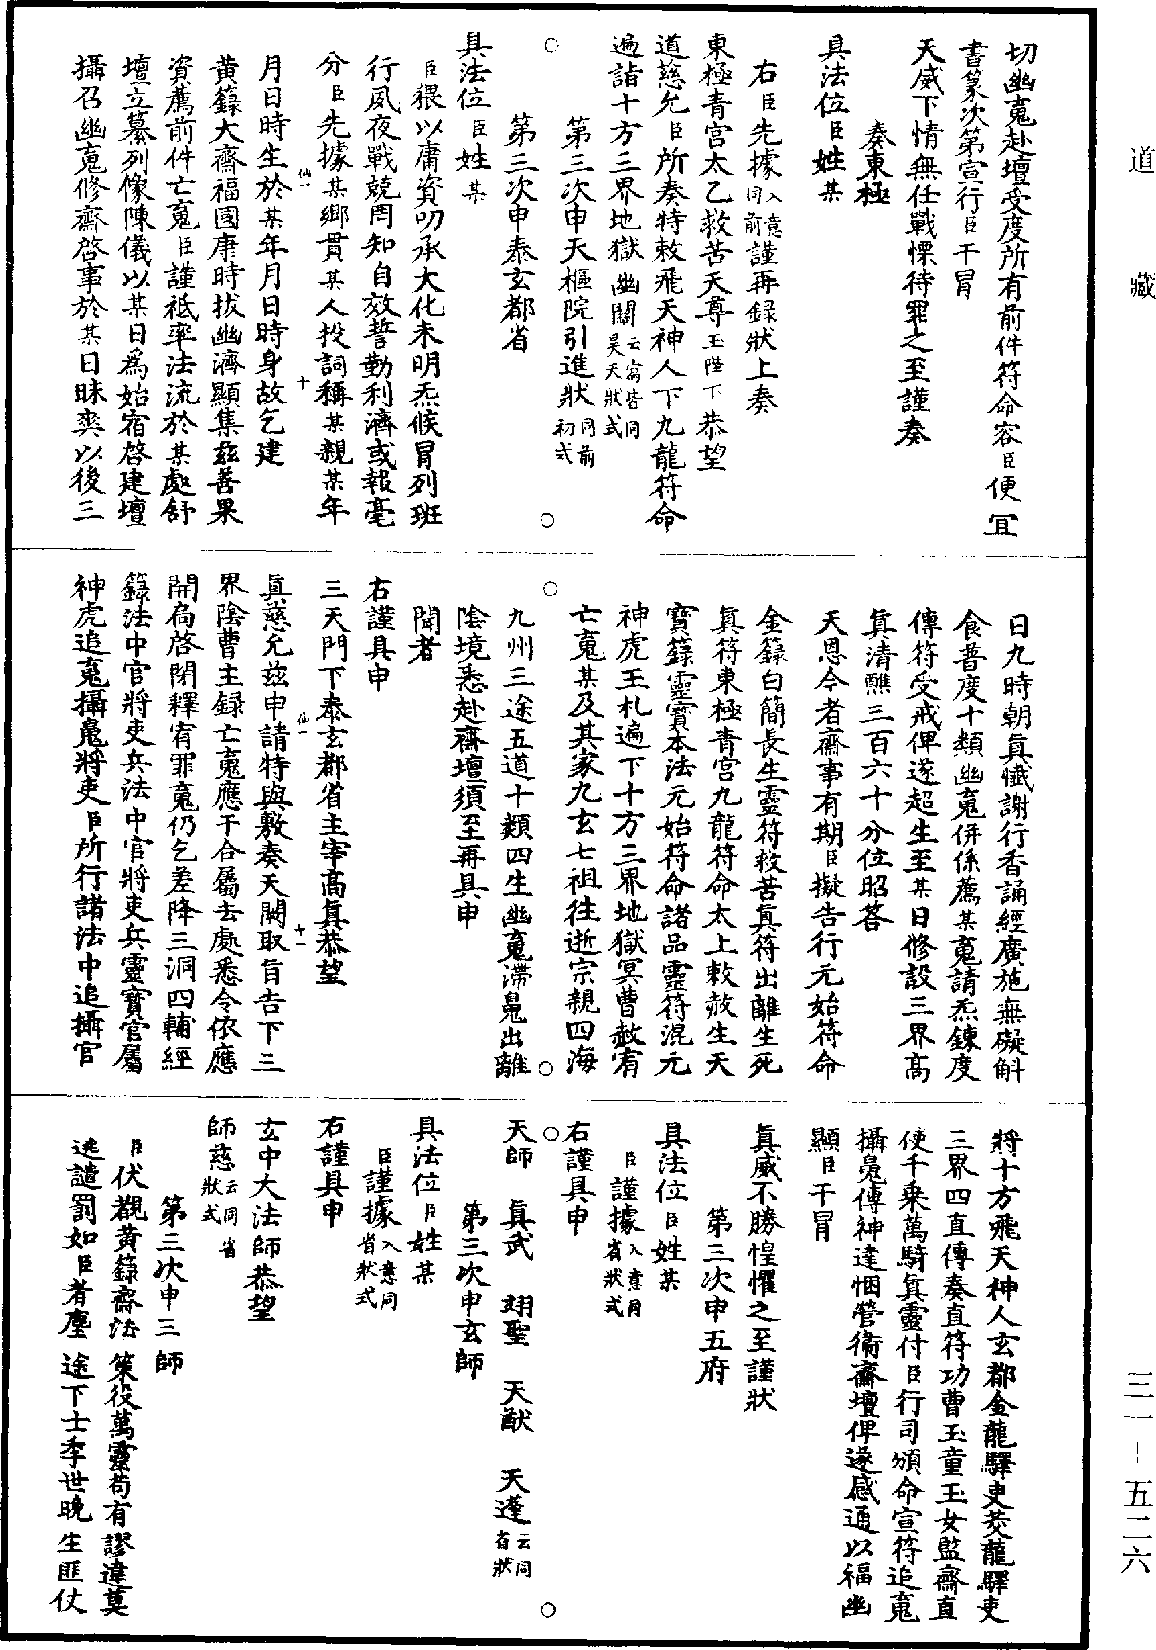 道藏
三一-五二六
切幽䰟赴壇受度所有前件符命容臣便宜
書篆次第宣行臣干冒
天威下情無任戰慄待罪之至謹奏
奏東極
具法位臣姓某
右臣先據入意同前謹再錄狀上奏
東極青宮太乙救苦天尊玉陛下恭望
道慈允臣所奏特敕飛天神人下九龍符命
遍詣十方三界地獄幽關云云皆同昊天狀式
第三次申天樞院引進狀同前初式
第三次申泰玄都省
具法位臣姓某
臣猥以庸資叨承大化未明炁候冒列班
行夙夜戰兢罔知自效誓勤利濟或報毫
分臣先據某鄉貫某人投詞稱某親某年
月日時生於某年月日時身故乞建
黃籙大齋福國康時拔幽濟顯集茲善果
資薦前件亡䰟臣謹祗率法流於某處舒
壇立纂列像陳儀以某日為始宿啓建壇
攝召幽䰟修齋啓事於某日昧爽以後三
仙一
十
日九時朝真懺謝行香誦經廣施無礙斛
食普度十類幽䰟併係薦某䰟請炁鍊度
傳符受戒俾遂超生至某日修設三界高
真清醮三百六十分位昭答
天恩今者齋事有期臣擬告行元始符命
金籙白簡長生靈符救苦真符出離生死
真符東極青宮九龍符命太上敕赦生天
寶籙靈寶本法元始符命諸品靈符混元
神虎玉札遍下十方三界地獄冥曹赦宥
亡䰟某及其家九玄七祖往逝宗親四海
九州三途五道十類四生幽䰟滯魄出離
陰境悉赴齋壇須至再具申
聞者
右謹具申
三天門下泰玄都省主宰高真恭望
真慈允茲申請特與敷奏天闕取旨告下三
界陰曹主錄亡䰟應干合屬去處悉令依應
開局啓閉釋宥罪䰟仍乞差降三洞四輔經
籙法中官將吏兵法中官將吏兵靈寶官屬
神虎追䰟攝魄將吏臣所行諸法中追攝官
仙一
十一
將十方飛天神人玄都金龍驛吏茭龍驛吏
三界四直傳奏直符功曹玉童玉女監齋直
使千乘萬騎真靈付臣行司頒命宣符追䰟
攝魄傳神達悃管衛齋壇俾遂感通以福幽
顯臣干冒
真威不勝惶懼之至謹狀
第三次申五府
具法位臣姓某
臣謹據入意同省狀式
右謹具申
天師 真武 翊聖 天猷 天蓬云同省狀
第三次申玄師
具法位臣姓某
臣謹據入意同省狀式
右謹具申
玄中大法師恭望
師慈云同省狀式
第三次申三師
臣伏覩黃籙齋法策役萬靈苟有謬違莫
逃譴罰如臣者塵途下士季世晚生匪仗